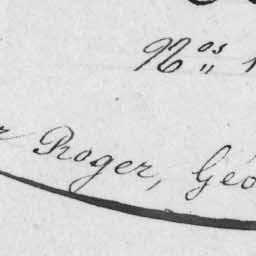 Nos
r Roger, Géo